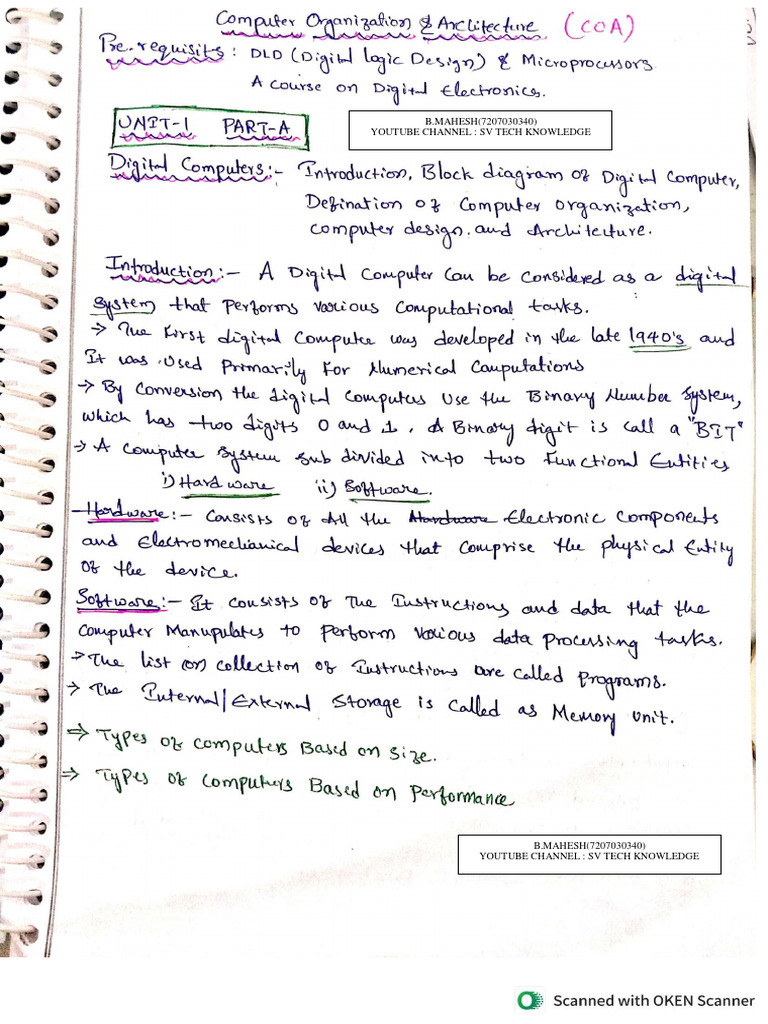 Computer Organization & Architecture (COA)
Pre.requisits : DLD (Digital logic Design) & Microprocessors
A course on Digital Electronics.
UNIT-1 PART-A
B.MAHESH(7207030340)
YOUTUBE CHANNEL : SV TECH KNOWLEDGE
Digital Computers:- Introduction, Block diagram of Digital Computer,
Defination of Computer Organization,
Computer design and Architecture.
Introduction:- A Digital Computer can be considered as a digital
system that performs various computational tasks.
→ The First digital Compute was developed in the late 1940's and
It was used Primarily For Numerical Computations
→ By Conversion the digital Computers use the Binary Number System,
which has two digits 0 and 1. A Binary digit is call a "BIT"
→ A Computer System sub divided into two Functional Entities
i) Hardware ii) Software.
Hardware:- Consists of All the Hardware Electronic Components
and Electromechanical devices that comprise the physical Entity
of the device.
Software:- It consists of The Instructions and data that the
Computer Manupulates to perform various data processing tasks.
→ The list (or) collection of Instructions are called programs.
→ The Internal/External Storage is called as Memory Unit.
⇒ Types of computers Based on Size.
⇒ Types of computers Based on Performance
B.MAHESH(7207030340)
YOUTUBE CHANNEL : SV TECH KNOWLEDGE
Scanned with OKEN Scanner